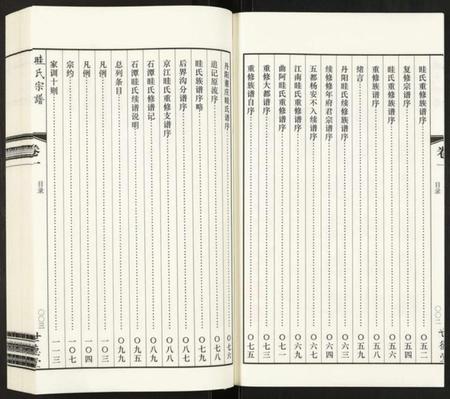 卷
目录
眭氏重修族谱序……〇五二
复修宗谱序……〇五四
眭氏重修族谱序……〇五六
重修族谱序……〇五八
绪言……〇五九
丹阳眭氏续修族谱序……〇六三
续修修年府君宗谱序……〇六四
五都杨安不入续谱序……〇六七
江南眭氏重修谱序……〇六九
曲阿眭氏重修谱序……〇七一
重修大都谱序……〇七三
重修族谱自序……〇七五
〇〇二
世德堂
丹阳 眭氏谱序……〇七六
追记原流序……〇七八
眭氏族谱序略……〇七九
后界沟分谱序……〇八五
京江眭氏重修支谱序……〇八八
石潭眭氏修谱记……〇八九
石潭眭氏续谱说明……〇九八
总列条目……〇九九
凡例……一〇三
凡例……一〇四
宗约……一〇七
家训十则……一一三
眭氏宗谱
卷一
目录
〇〇三
世德堂